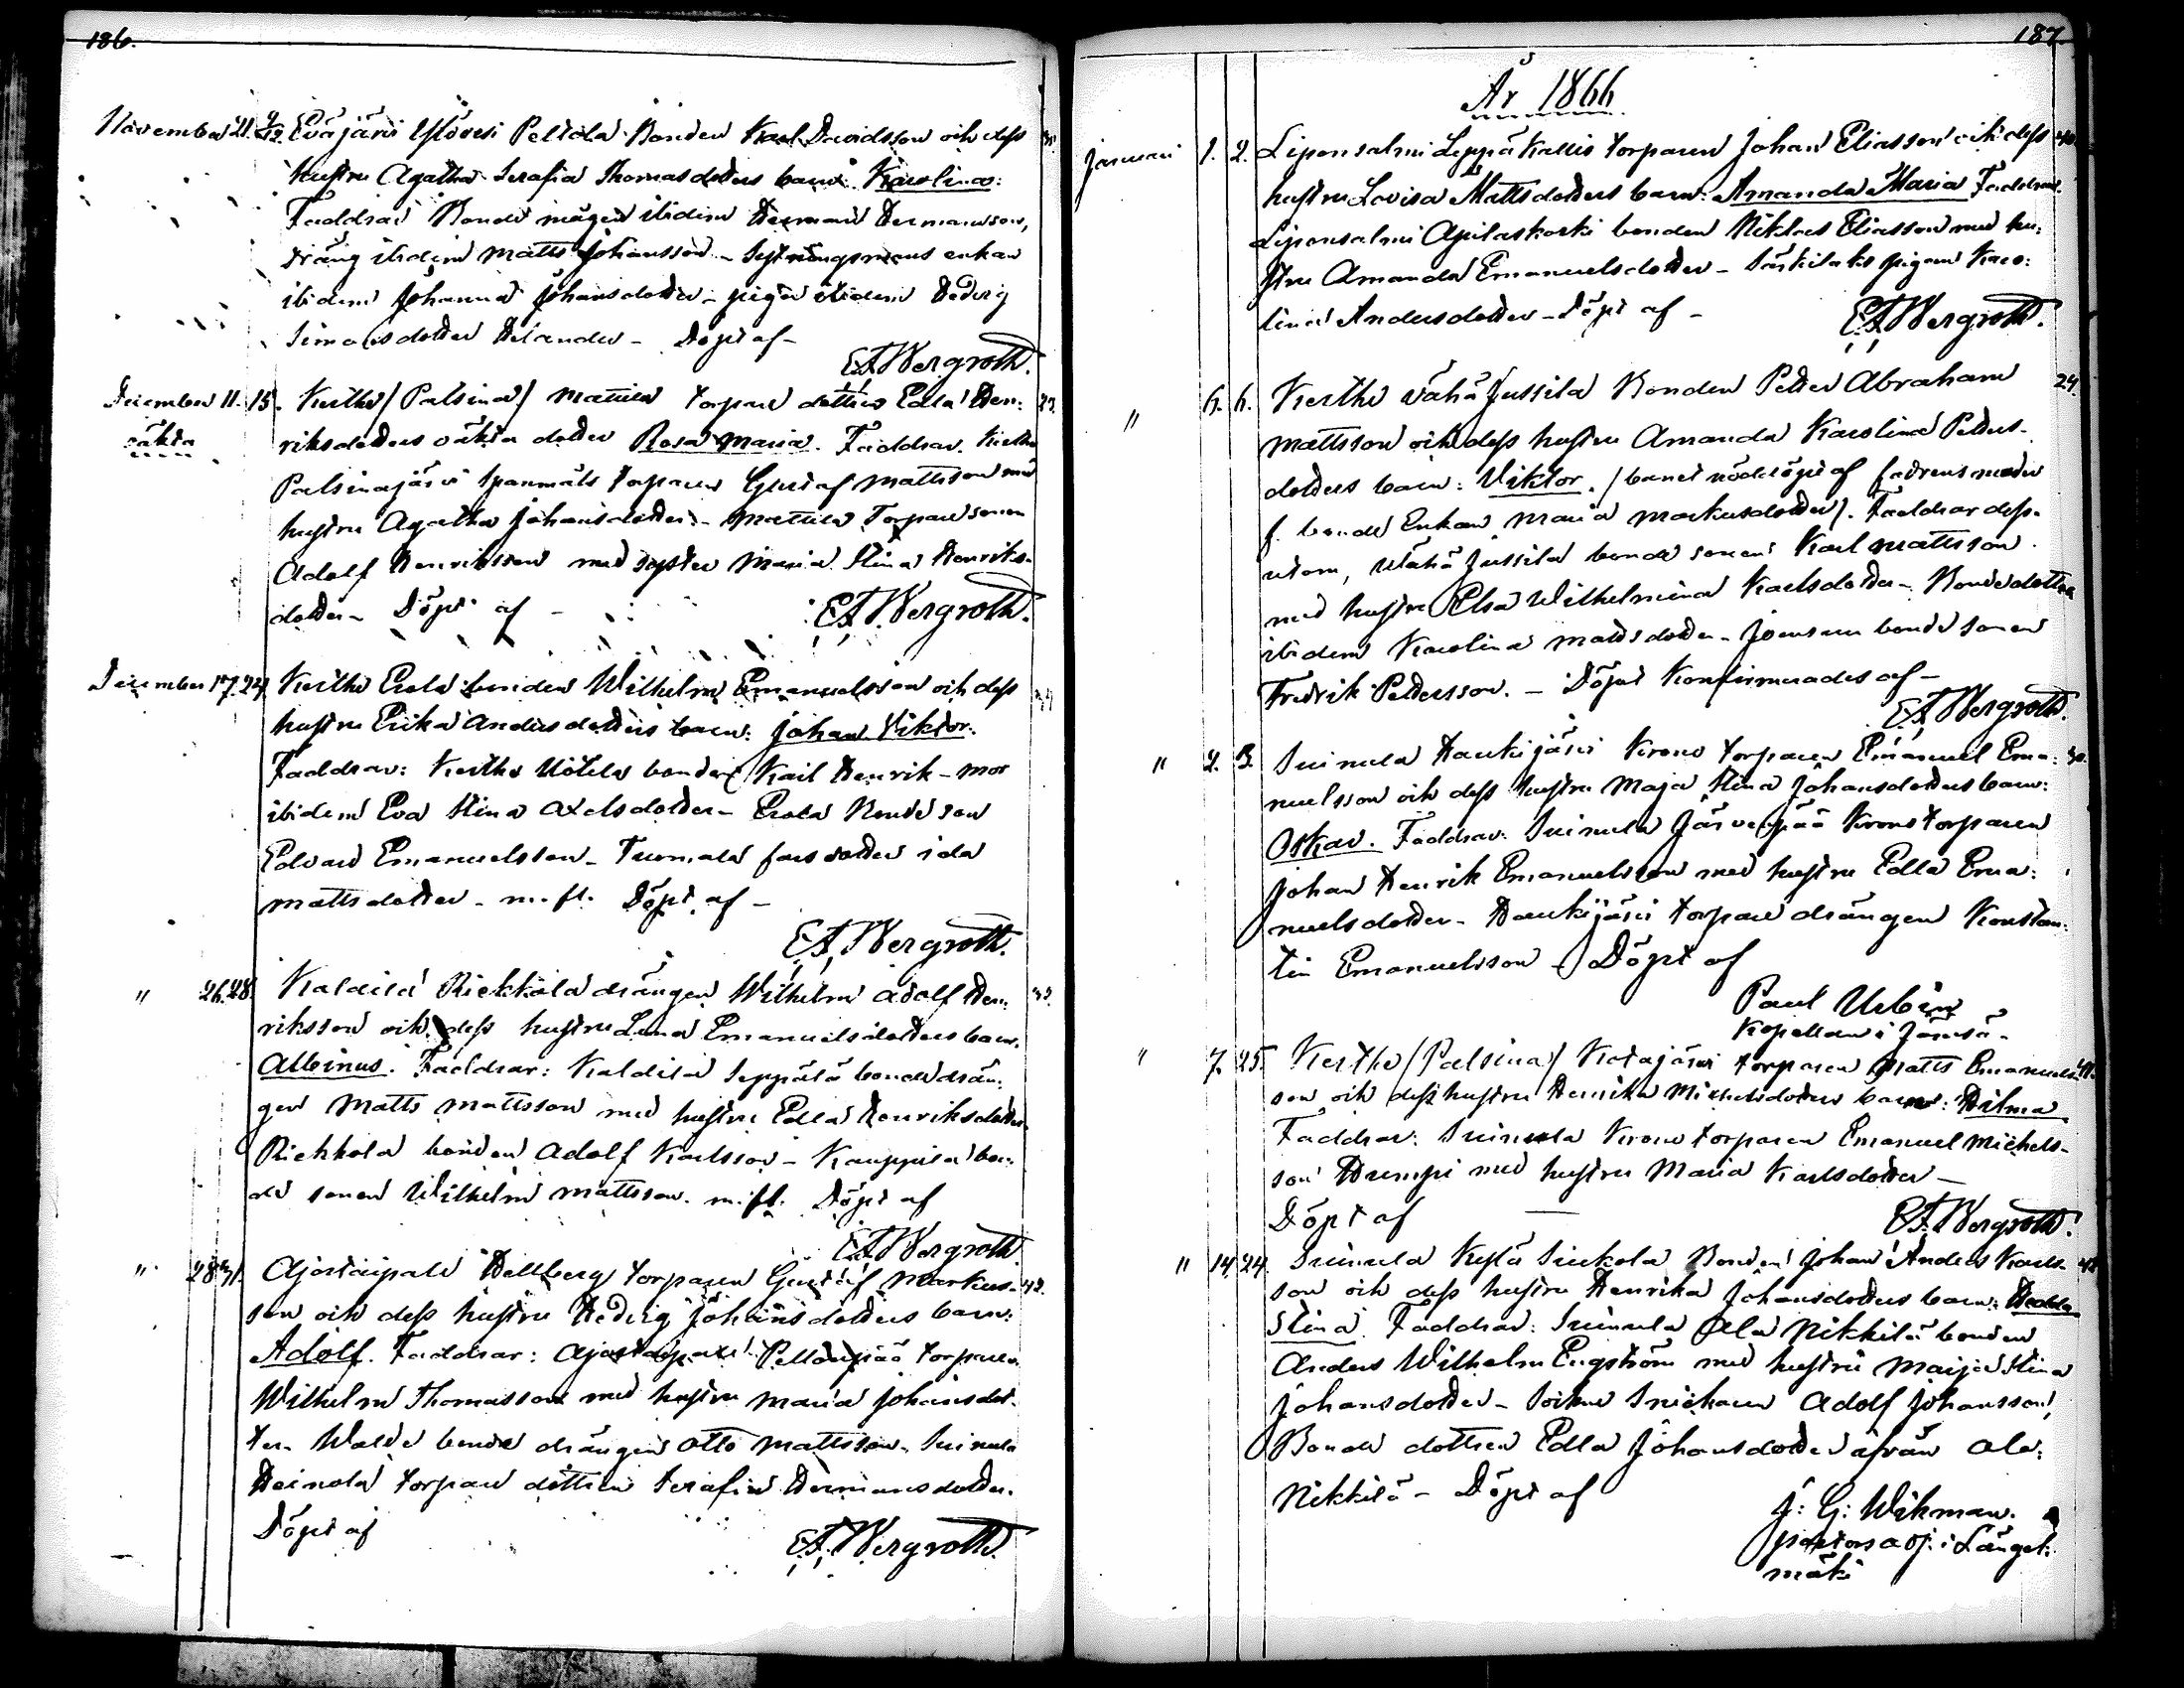 186.
November 21. 9/12. Eväjärvi Ylövesi Peltola Bonden Karl Davidsson och dess
hustru Agatha Serafia Thomasdotters barn: Karolina:
Faddrar Bonde mågen ibidem Herman Hermansson,
dräng ibidem Matts Johansson – Sytningsmans enkan
ibidem Johanna Johansdotter – pigan ibidem Hedvig
Simonsdotter Helander – Döpt af –
E A Wergroth.
December 11. 15. Keitho (Palsina) Mattila torpare dottren Edla Hen: 23.
oäkta riksdotters oäkta dotter Rosa Maria. Faddrar. Keitho
Palsinajärvi Spanmäls torparen Gustaf Mattsson med
hustru Agatha Johansdotter – Mattila Torpare sonen
Adolf Henriksson med syster Maria Stina Henriks-
dotter – Döpt af –
E A Wergroth.
December 17. 24. Keitho Erola bonden Wilhelm Emanuelsson och dess
hustru Erika Andersdotters barn: Johan Viktor.
Faddrar: Keitho Uotila bonden Karl Henrik – mor
ibidem Eva Stina Axelsdotter – Erola Bonde son
Edvard Emanuelsson – Tuomala fars dotter Ida
Mattsdotter – m. fl. Döpt af –
E A Wergroth.
" 26. 28. Kaldila Riekkola drängen Wilhelm Adolf Hen:
riksson och dess hustru Lena Emanuelsdotters barn.
Albinus. Faddrar: Kaldila Seppälä bonde drän:
gen Matts Mattsson med hustru Edla Henriksdotter
Riekkola bonden Adolf Karlsson – Kauppila bon:
de sonen Wilhelm Mattsson. m. fl. Döpt af
E A Wergroth.
" 28. 31. Ajostaipale Hellberg torparen Gustaf Markus- 42.
son och dess hustru Hedvig Johansdotters barn:
Adolf. Faddrar: Ajostaipale Pellonpää torparen
Wilhelm Thomasson med hustru Maria Johansdot-
ter. Walde bonde drängen Otto Mattsson. Suinula
Heinola torpare dottren Serafia Hermansdotter.
Döpt af
E A Wergroth.
187.
År 1866
Januari 1. 2. Liponsalmi Leppäkallio torparen Johan Eliasson och dess 40.
hustru Lovisa Mattsdotters barn: Amanda Maria Faddrar.
Liponsalmi Apilaskoski bonden Niklas Eliasson med hu:
stru Amanda Emanuelsdotter – Särkilaks pigan Karo:
lina Andersdotter – Döpt af –
E A Wergroth.
" 6. 6. Keitho Vähä Jussila Bonden Petter Abraham 24.
Mattsson och dess hustru Amanda Karolina Petters-
dotters barn: Viktor. (barnet nöddöpt af fadrens moder
f. bonde Enkan Maria Markusdotter). Faddrar dess-
utom, Wähä Jussila bonde sonen Karl Mattsson
med hustru Elsa Wilhelmina Karlsdotter – Bonde dottren
ibidem Karolina Mattsdotter – Joensuu bonde sonen
Fredrik Pettersson. – Döpet Konfirmerades af –
E A Wergroth.
" 2. 3. Suinula Haukijärvi Krono torparen Emanuel Ema: 30.
nuelsson och dess hustru Maja Stina Johansdotters barn:
Oskar. Faddrar: Suinula Järvenpää Kronotorparen
Johan Henrik Emanuelsson med hustru Edla Ema:
nuelsdotter – Haukijärvi torpare drängen Konstan:
tin Emanuelsson – Döpt af
Paul Urbin
Kapellan i Jämsä –
" 7. 25. Keitho (Palsina) Katajärvi torparen Matts Emanuels 41.
son och dess hustru Henrika Michelsdotters barn: Hilma
Faddrar: Suinula Krono torparen Emanuel Michels-
son Humpi med hustru Maria Karlsdotter –
Döpt af
E A Wergroth.
" 14. 24. Suinula Kylä Siukola Bonden Johan Anders Karls-
son och dess hustru Henrika Johansdotters barn: Hedda
Stina. Faddrar: Suinula Ala Nikkilä bonden
Anders Wilhelm Engström med hustru Maija Stina
Johansdotter – Soikua Snickaren Adolf Johansson,
Bonde dottren Edla Johansdotter ifrån Ala:
Nikkilä – Döpt af
J: G: Wikman.
pastors adj. i Längel:
mäki